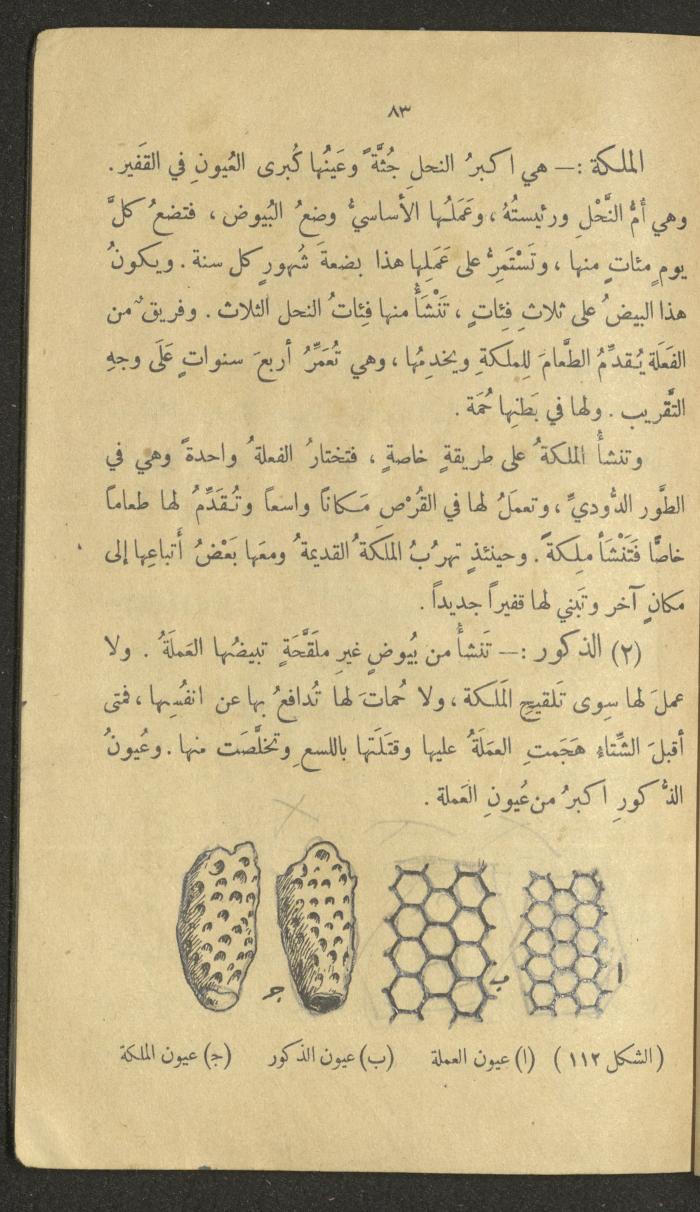 ٨٣
الملكة :— هي اكبرُ النحلِ جُثَّةً وعَينُها كُبرى العُيونِ في القَفير .
وهي أمُّ النَّحْلِ ورئيستُهُ ، وعَمَلُها الأساسيُّ وضعُ البُيوض ، فتضعُ كلَّ
يومٍ مئاتٍ منها ، وتَسْتَمِرُّ على عَمَلِها هذا بضعةَ شُهورٍ كل سنة . ويكونُ
هذا البيضُ على ثلاثِ فِئاتٍ ، تَنْشَأُ منها فِئاتُ النحل الثلاث . وفريقٌ من
الفَعَلَة يُقدِّمُ الطَّعامَ لِلملكةِ ويخدِمُها ، وهي تُعَمِّرُ أربعَ سنواتٍ عَلَى وجهِ
التَّقريب . ولها في بَطنِها حُمَة .
وتنشأُ الملكةُ على طريقةٍ خاصةٍ ، فتختارُ الفعلةُ واحدةً وهي في
الطَّور الدُّوديِّ ، وتعملُ لها في القُرْصِ مَكانًا واسعاً وتُقَدِّمُ لها طعاماً
خاصًّا فَتَنْشَأ ملِكةً . وحينئذٍ تهرُبُ الملكةُ القديمةُ ومعَها بَعْضُ أَتباعِها إلى
مكانٍ آخر وتَبني لها قفيراً جديداً .
(٢) الذكور :— تَنشأُ من بُيوضٍ غيرِ ملقَّحَةٍ تبيضُها العَملَةُ . ولا
عملَ لها سِوى تَلقيحِ المَلكة ، ولا حُماتَ لها تُدافعُ بها عن انفُسِها ، فمتى
أقبلَ الشِّتاءِ هَجَمتِ العمَلَةُ عليها وقتَلَتها باللسعِ وتخلَّصَت منها . وعُيونُ
الذُّكورِ اكبرُ من عُيونِ العَملة .
ا
ب
ج
(الشكل ١١٢) (ا) عيون العملة (ب) عيون الذكور (ج) عيون الملكة